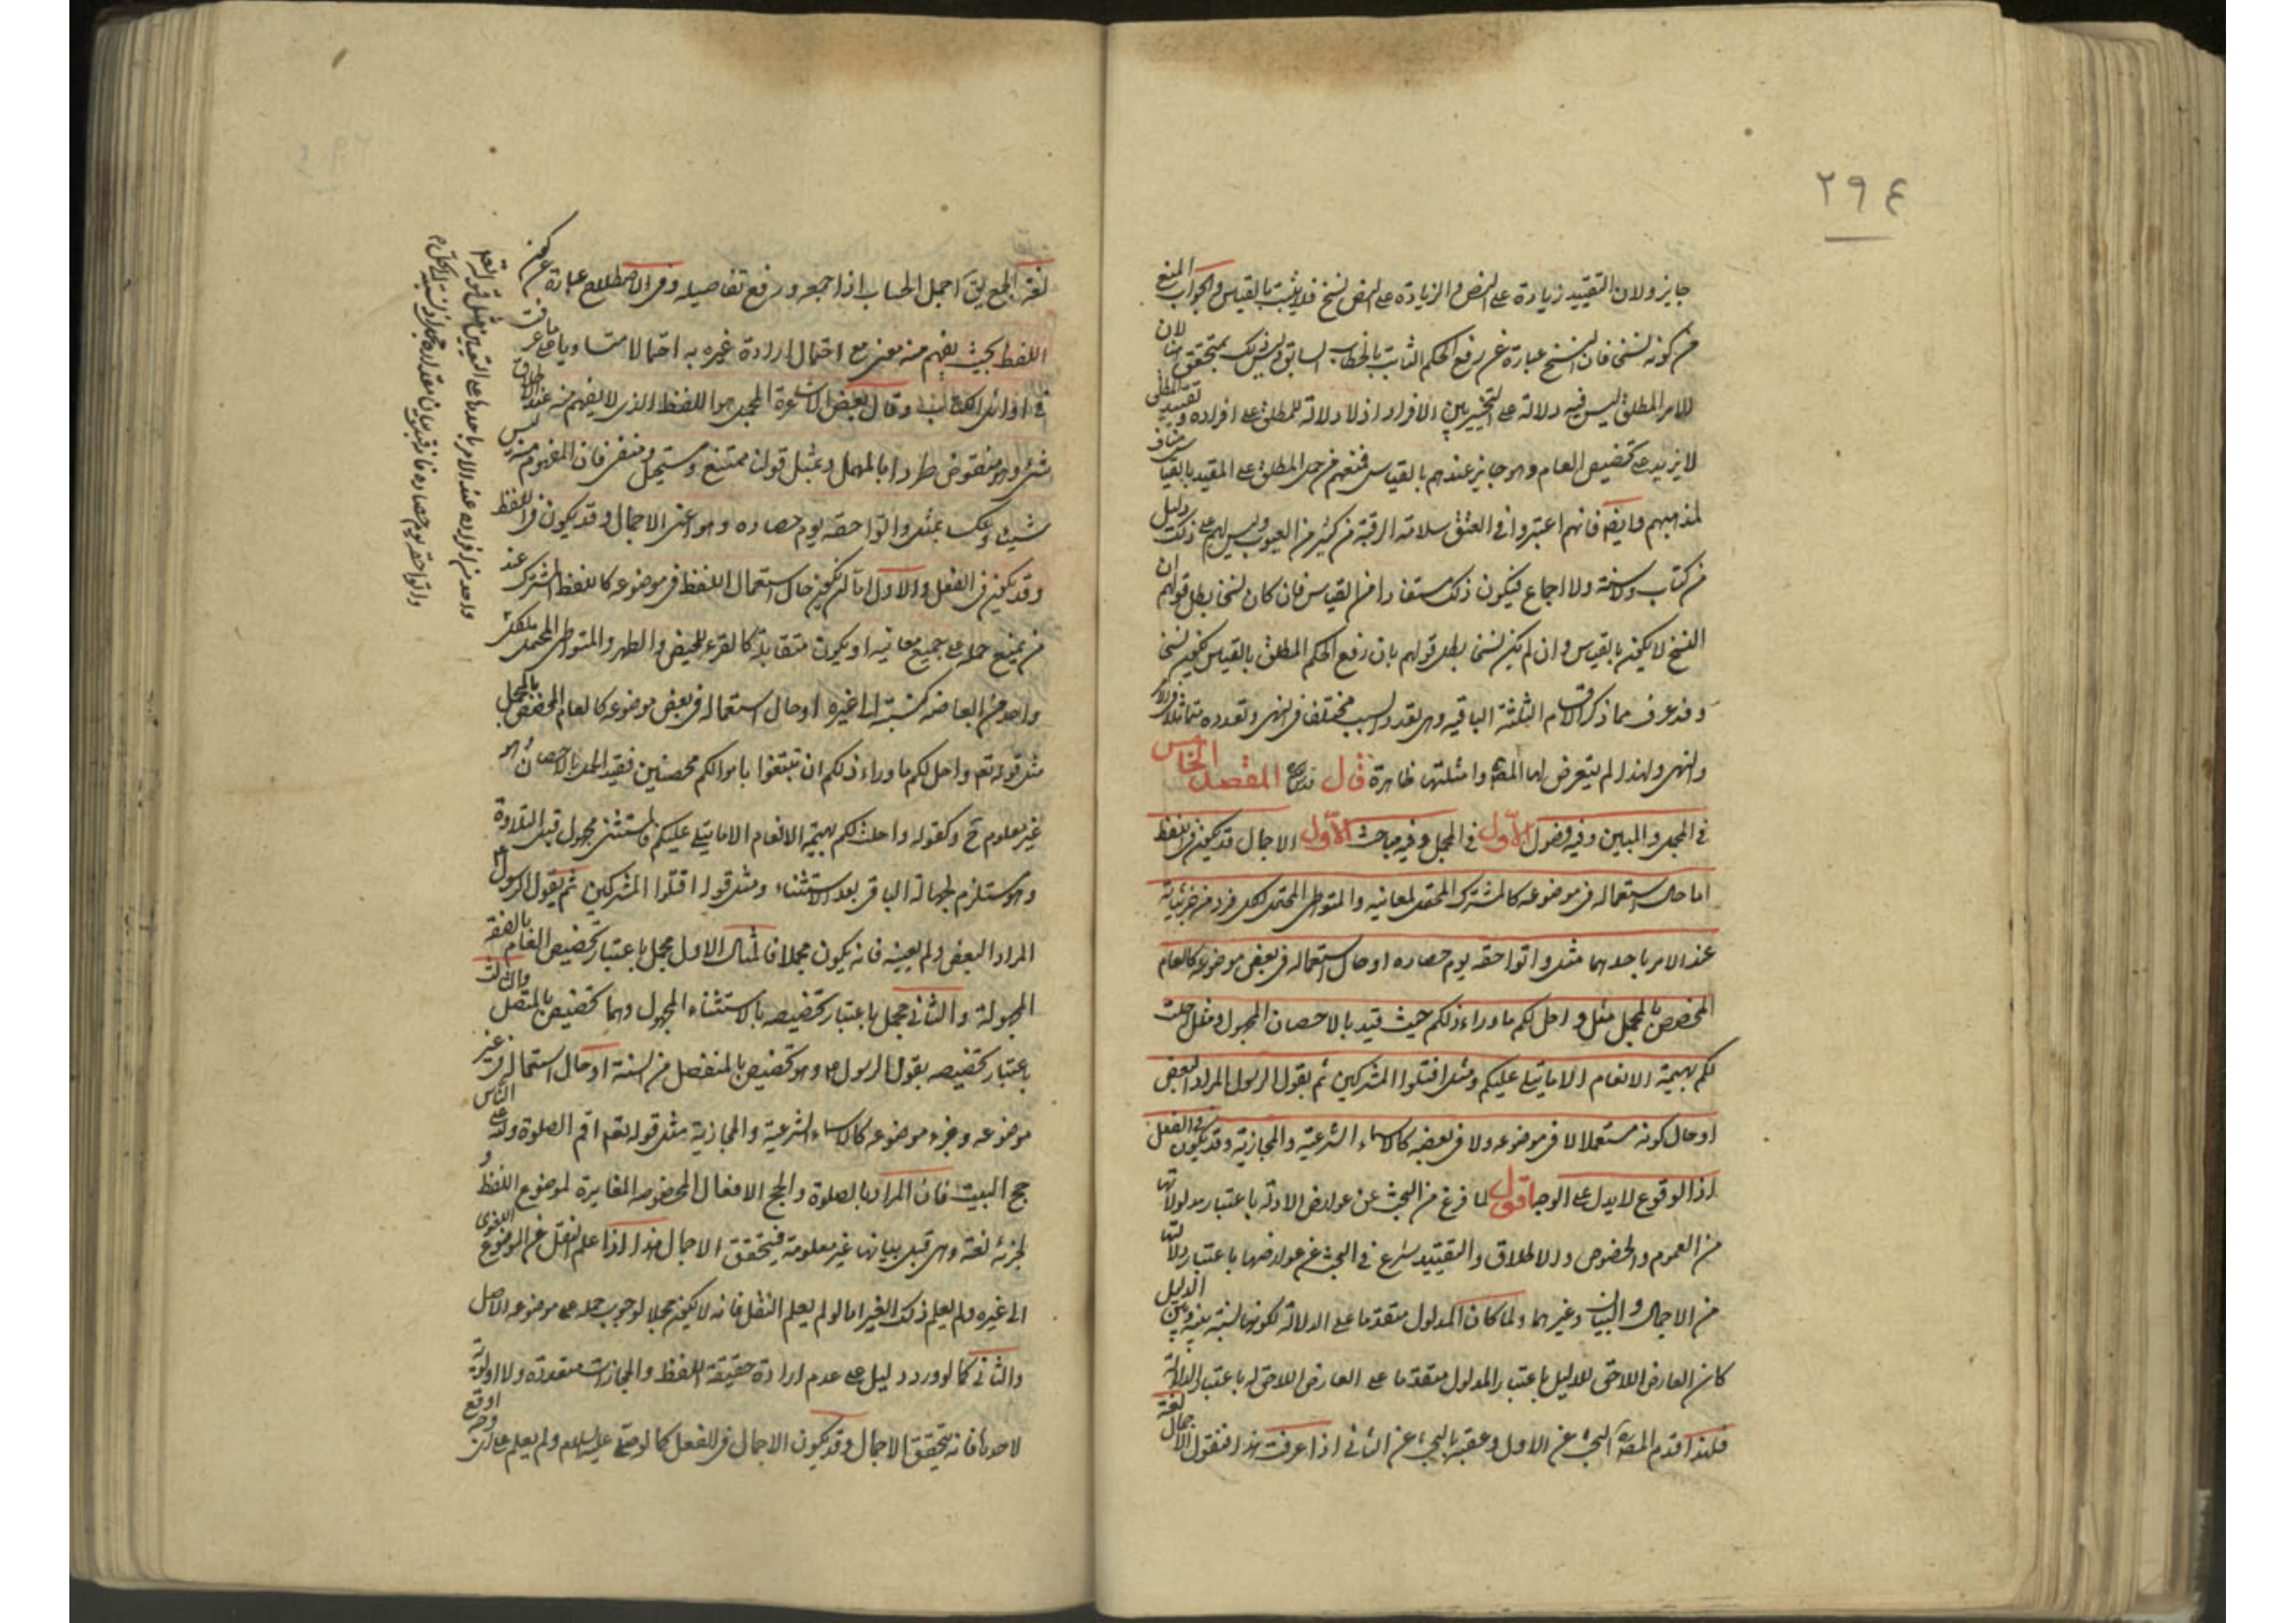 ٢٩٤
جايز ولان التقييد زيادة على النص والزيادة على النص نسخ فلا يثبت بالقياس والجواب المنع
من كونه نسخا فان النسخ عبارة عن رفع الحكم الثابت بالخطاب السابق وليس ذلك بمتحقق هنا لان
الامر المطلق ليس فيه دلالة على التخيير بين الافراد اذ لا دلالة للمطلق على افراده وتقييد المطلق
لا يزيد على تخصيص العام وهو جايز عندهم بالقياس فمنعهم من حمل المطلق على المقيد بالقياس مناف
لمذهبهم وايضا فانهم اعتبروا في العتق سلامة الرقبة من كثير من العيوب وليس لهم على ذلك دليل
من كتاب ولا سنة ولا اجماع فيكون ذلك مستفادا من القياس فان كان نسخا بطل قولهم ان
النسخ لا يكون بالقياس وان لم يكن نسخا بطل قولهم بان رفع الحكم المطلق بالقياس يكون نسخا
وقد عرف مما ذكر الاقسام الثلثة الباقية وهي تعدد السبب مختلفا في النهى وتعدده متماثلا في الامر
والنهى ولهذا لم يتعرض لها المص وامثلتها ظاهرة قال المقصد الخامس
في المجمل والمبين وفيه فصول الاول في المجمل وفيه مباحث الاول الاجمال قد يكون في اللفظ
اما حال استعماله في موضوعه كالمشترك المحتمل لمعانيه والمتواطى المحتمل لكل فرد من جزئياته
عند الامر باحدهما مثل واتوا حقه يوم حصاده او حال استعماله في بعض موضوعه كالعام
المخصص بالمجمل مثل واحل لكم ما وراء ذلكم حيث قيد بالاحصان المجهول ومثل احلت
لكم بهيمة الانعام الا ما يتلى عليكم ومثل اقتلوا المشركين ثم يقول الرسول المراد البعض
او حال كونه مستعملا لا في موضوعه ولا في بعضه كالاسماء الشرعية والمجازية وقد يكون في الفعل
اذ الوقوع لا يدل على الوجه اقول لما فرغ من البحث عن عوارض الادلة باعتبار مدلولاتها
من العموم والخصوص والاطلاق والتقييد شرع في البحث عن عوارضها باعتبار دلالتها
من الاجمال والبيان وغيرهما ولما كان المدلول متقدما على الدلالة لكونها نسبة بينه وبين الدليل
كان العارض اللاحق للدليل باعتبار المدلول متقدما على العارض اللاحق له باعتبار الدلالة
فلهذا قدم المص البحث عن الاول وعقبه بالبحث عن الثاني اذا عرفت هذا فنقول الاجمال لغة
لغة الجمع يق اجمل الحساب اذا جمعه ورفع تفاصيله وفي الاصطلاح عبارة عن كون
اللفظ بحيث يفهم منه معنى مع احتمال ارادة غيره به احتمالا متساويا على ما عرفت
في اوائل الكتاب وقال بعض الاشاعرة المجمل هو اللفظ الذى لا يفهم منه عند اطلاقه
شئ وهو منقوض طردا بالمهمل وبمثل قولنا ممتنع ومستحيل ومنفى فان المفهوم منه ليس
شيئا وعكسا بمثل واتوا حقه يوم حصاده وهو اعنى الاجمال وقد يكون في اللفظ
وقد يكون في الفعل والاول اما ان يكون حال استعمال اللفظ في موضوعه كاللفظ المشترك عند
من يمنع حمله على جميع معانيه او يكون متقابلة كالقرء للحيض والطهر والمتواطى المحتمل لكل
واحد من ابعاضه كنسبته الى غيره او حال استعماله في بعض موضوعه كالعام المخصص بالمجمل
مثل قوله تع واحل لكم ما وراء ذلكم ان تبتغوا باموالكم محصنين فقيد الحل بالاحصان وهو
غير معلوم ح وكقوله واحلت لكم بهيمة الانعام الا ما يتلى عليكم فالمستثنى مجهول قبل التلاوة
وهو مستلزم لجهالة الباقى بعد الاستثناء ومثل قوله اقتلوا المشركين ثم يقول الرسول
المراد البعض ولم يعينه فانه يكون مجملا فالمثال الاول مجمل باعتبار تخصيص العام بالصفة
المجهولة والثاني مجمل باعتبار تخصيصه بالاستثناء المجهول وهما تخصيص بالمتصل والثالث
باعتبار تخصيصه بقول الرسول وهو تخصيص بالمنفصل من السنة او حال استعماله في غير
موضوعه وجزء موضوعه كالاسماء الشرعية والمجازية مثل قوله تع اقم الصلوة ولله على الناس
حج البيت فان المراد بالصلوة والحج الافعال المخصوصة المغايرة لموضوع اللفظ و
لجزئه لغة وهي قبل بيانها غير معلومة فيتحقق الاجمال هذا اذا علم النقل عن الموضوع اللغوى
الى غيره ولم يعلم ذلك الغير اما لو لم يعلم النقل فانه لا يكون مجملا لوجوب حمله على موضوعه الاصل
والثاني كما لو ورد دليل على عدم ارادة حقيقة اللفظ والمجازات متعددة ولا اولوية
لاحدها فانه يتحقق الاجمال وقد يكون الاجمال في الفعل كما لو صلى عليه السلم ولم يعلم على اى وجه اوقع
واحد من افراده عند الامر باحدها على التعيين مثل قوله تعم
واتوا حقه يوم حصاده